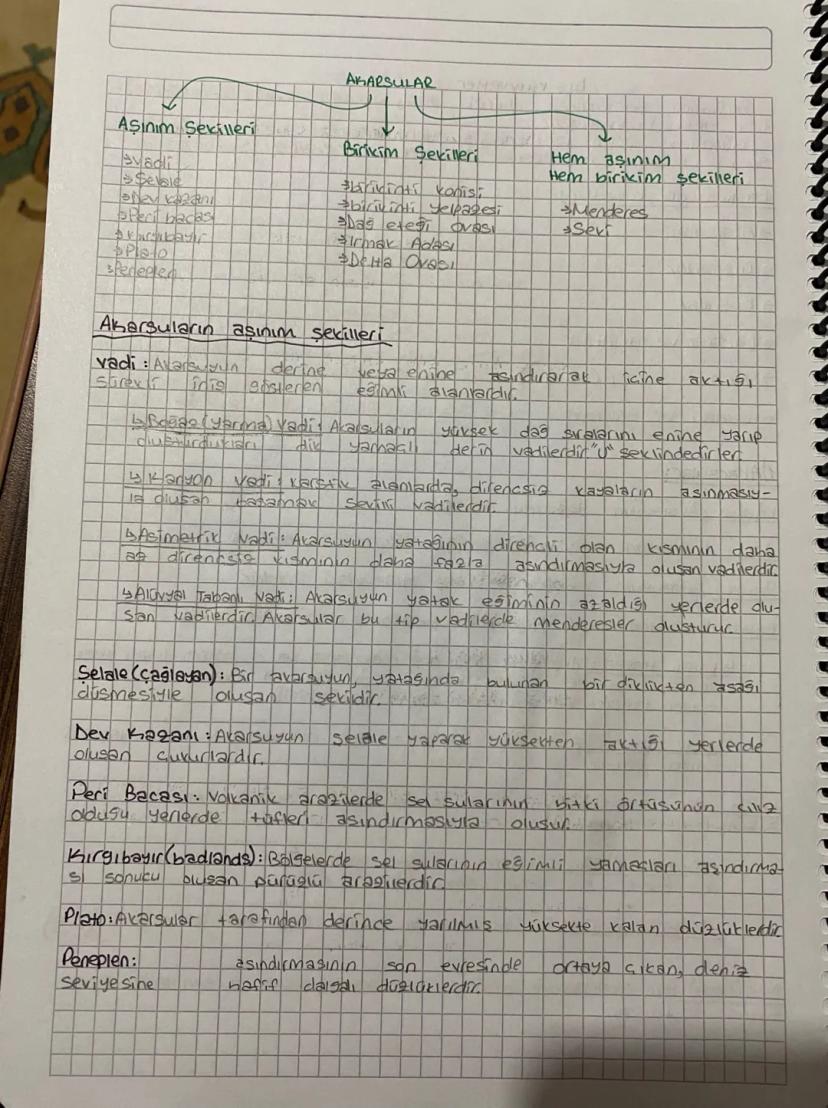 AKARSULAR
Aşınım Şekilleri
Birikim Şekilleri
Hem aşınım
Hem birikim şekilleri
→Vadi
→Şelale
→Dev kazanı
→Peri bacası
→Kırgıbayır
→Plato
→Peneplen
→birikinti konisi
→birikinti yelpazesi
→Dağ eteği ovası
→Irmak Adası
→Delta Ovası
→Menderes
→Seki
Akarsuların aşınım şekilleri
Vadi: Akarsuyun derine veya enine aşındırarak içine aktığı
sürekli iniş gösteren eğimli alanlardır.
↳Boğaz (yarma) Vadi: Akarsuların yüksek dağ sıralarını enine yarıp
oluşturdukları dik yamaçlı derin vadilerdir "U" şeklindedirler
↳Kanyon Vadi: karstik alanlarda, dirençsiz kayaların aşınmasıy-
la oluşan basamak şekilli vadilerdir.
↳Asimetrik Vadi: Akarsuyun yatağının dirençli olan kısmının daha
az dirençsiz kısmının daha fazla aşındırmasıyla oluşan vadilerdir
↳Alüvyal Tabanlı Vadi: Akarsuyun yatak eğiminin azaldığı yerlerde olu-
şan vadilerdir. Akarsular bu tip vadilerde menderesler oluşturur.
Şelale (çağlayan): Bir akarsuyun, yatağında bulunan bir diklikten aşağı
düşmesiyle oluşan şekildir.
Dev Kazanı: Akarsuyun şelale yaparak yüksekten aktığı yerlerde
oluşan çukurlardır.
Peri Bacası: Volkanik arazilerde sel sularının bitki örtüsünün cılız
olduğu yerlerde tüfleri aşındırmasıyla oluşur.
Kırgıbayır (badlands): Bölgelerde sel sularının eğimli yamaçları aşındırma-
sı sonucu oluşan pürüzlü arazilerdir.
Plato: Akarsular tarafından derince yarılmış yüksekte kalan düzlüklerdir
Peneplen: aşındırmasının son evresinde ortaya çıkan, deniz
seviyesine hafif dalgalı düzlüklerdir.